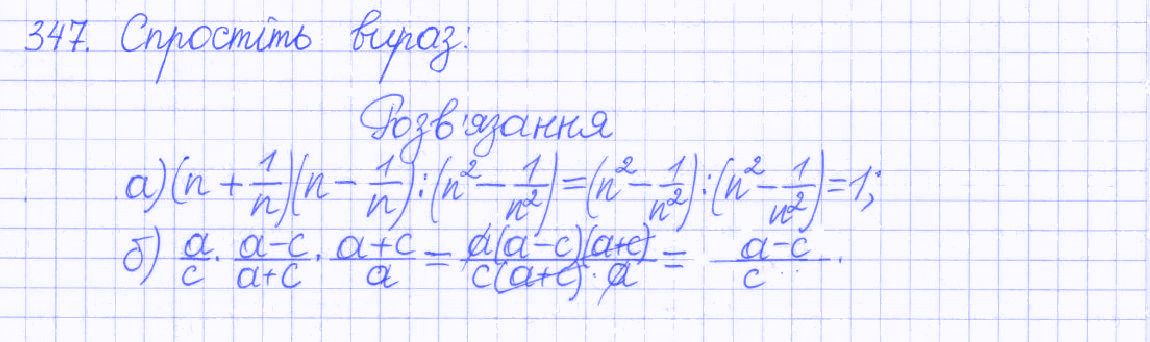 347. Спростіть вираз:
Розв'язання
а) (n + 1/n)(n − 1/n) : (n² − 1/n²) = (n² − 1/n²) : (n² − 1/n²) = 1;
б) a/c · (a−c)/(a+c) · (a+c)/a = a(a−c)(a+c)/c(a+c)·a = (a−c)/c.